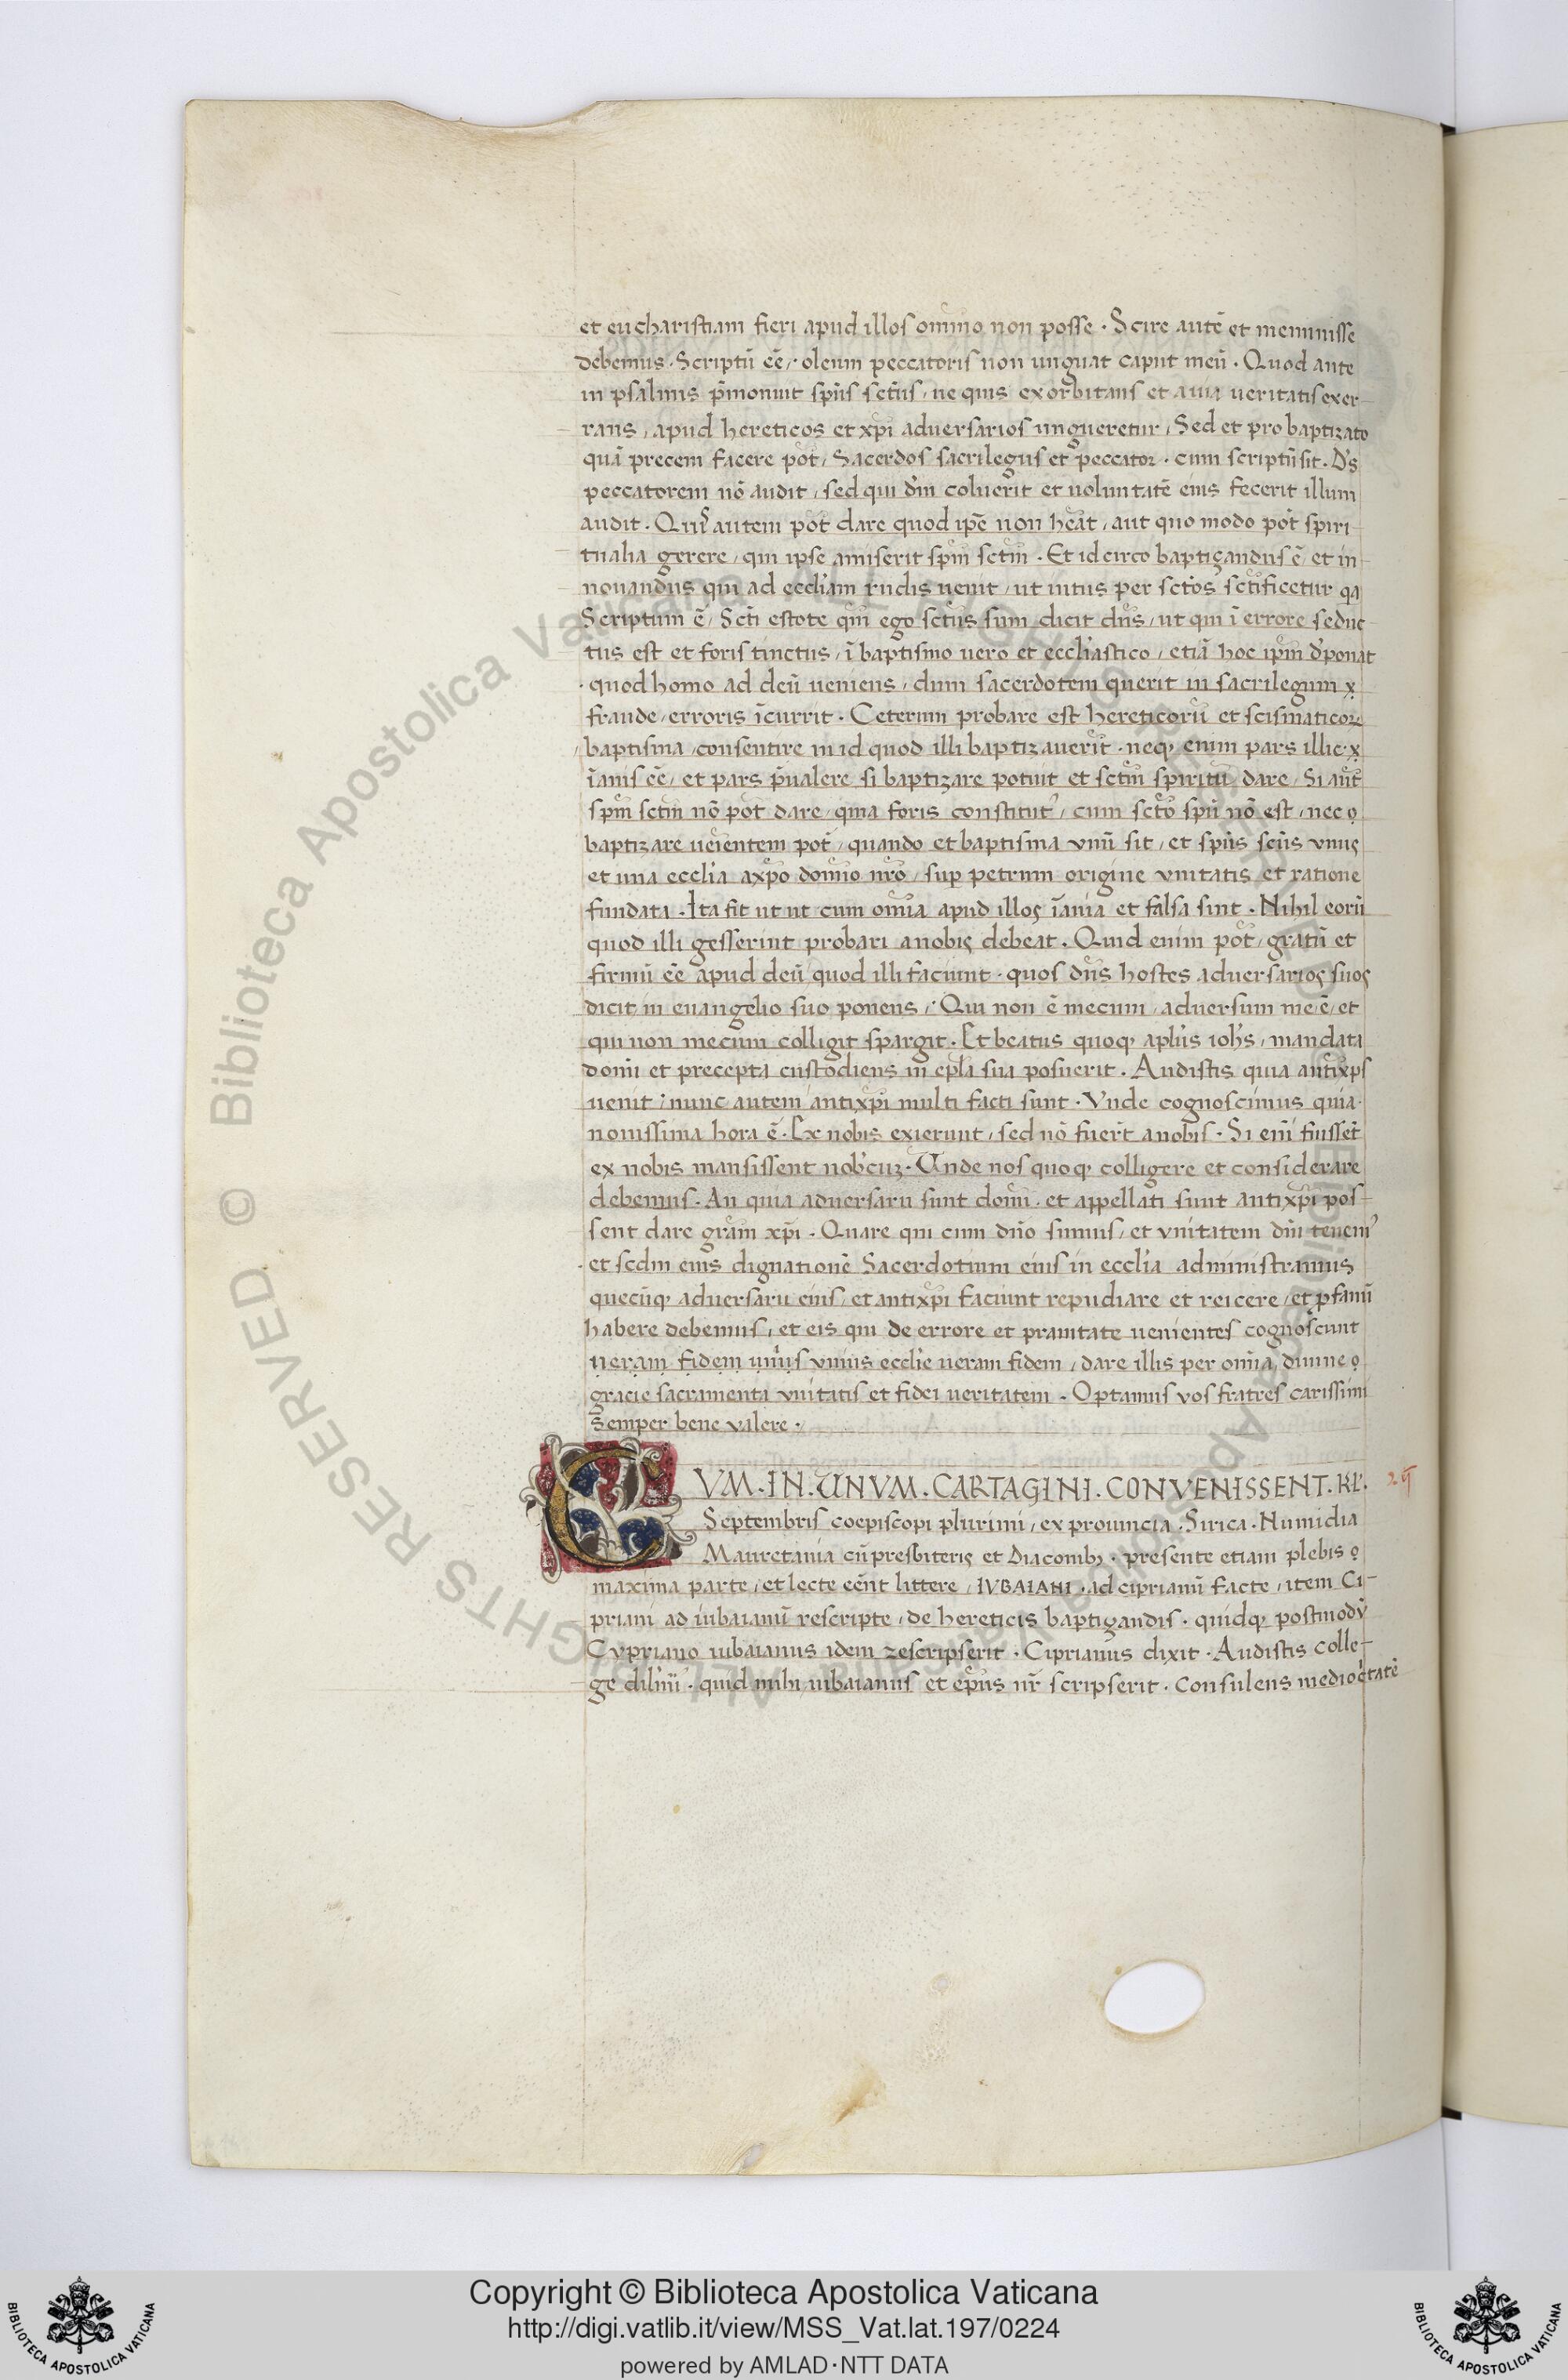 et eucharistiam fieri apud illos omĩno non posse · Scire autẽ et meminisse
debemus · Scriptũ eẽ, · oleum peccatoris non unguat caput meũ · Quod ante
in psalmis p̃monuit sp̃us sc̃tus, ne quis exorbitans et avia ueritatis exer-
rans, apud hereticos et xp̃i adversarios ungueretur, Sed et pro baptizato
quã precem facere pot̃, Sacerdos sacrilegus et peccator · cum scriptũ sit · D's
peccatorem nõ audit, sed qui dm̃ coluerit et voluntatẽ eius fecerit illum
audit · Quis autem pot̃ dare quod ip̃e non heat̃, aut quo modo pot̃ spiri-
tualia gerere, qui ipse amiserit spm̃ sctm̃ · Et idcirco baptizandus ẽ, et in-
novandus qui ad eccliam rudis uenit, ut intus per sctõs sctificetur qa
Scriptum ẽ, Scti estote qm̃ ego sctus sum dicit dñs, ut qui ĩ errore seduc-
tus est et foris tinctus, ĩ baptismo uero et eccliastico, etiã hoc ipm̃ d'ponat
· quod homo ad deũ ueniens, dum sacerdotem querit in sacrilegum x
fraude, erroris ĩcurrit · Ceterum probare est hereticorũ et scismaticoꝝ
baptisma, consentire in id quod illi baptizaverit̃ · neqꝫ enim pars illic x
ĩanis eẽ, et pars p̃valere si baptizare potuit et sctm̃ spiritũ dare, Si aut̃
spm̃ sctm̃ nõ pot̃ dare, quia foris constitut', cum sctõ spũ nõ est, nec o
baptizare ueientem pot̃, quando et baptisma vnũ sit, et spũs scũs vnus
et una ecclia axpõ domĩo nrõ, sup petrum origine vnitatis et ratione
fundata · Ita fit ut ut cum omĩa apud illos ĩania et falsa sint · Nihil eorũ
quod illi gesserint probari anobis debeat · Quid enim pot̃, gratũ et
firmũ eẽ apud deũ quod illi faciunt · quos dñs hostes adversarios suos
dicit, in evangelio suo ponens, · Qui non ẽ mecum, adversum me ẽ, et
qui non mecum colligit spargit · Et beatus quoqꝫ aplus ioh's, mandata
domĩ et precepta custodiens in epla sua posuerit · Audistis quia antixps
uenit, nunc autem antixpi multi facti sunt · Vnde cognoscimus quia
novissima hora ẽ · Ex nobis exierunt, sed nõ fuert̃ anobis · Si enĩ fuisset̃
ex nobis mansissent nob'cuz · Unde nos quoqꝫ colligere et considerare
debemus · An quia adversarii sunt domĩ · et appellati sunt antixpi pos-
sent dare gram̃ xp̃i · Quare qui cum dño sumus, et vnitatem dm̃ tenem'
· et scdm eius dignationẽ Sacerdotium eius in ecclia administramus
quecũqꝫ adversarii eius, et antixpi faciunt repudiare et reicere, et pfanũ
habere debemus, et eis qui de errore et pravitate uenientes cognoscunt
ueram fidem unius vnius ecclie ueram fidem, dare illis per omĩa divine o
gracie sacramenta vnitatis et fidei ueritatem · Optamus vos fratres carissimi
semper bene valere ·
CVM · IN · UNVM · CARTAGINI · CONVENISSENT · KL'·
Septembris coepiscopi plurimi, ex provincia · Sirica · Numidia
Mauretania cũ presbiteris et Diaconibꝫ · presente etiam plebis o
maxima parte, et lecte eẽnt littere, IVBAIANI · ad ciprianũ facte, item Ci-
priani ad iubaianũ rescripte, de hereticis baptizandis · quidqꝫ postmodũ
Cypriano iubaianus idem rescripserit · Ciprianus dixit · Audistis colle-
ge dilm̃i · quid mihi iubaianus et ep̃us nr̃ scripserit · Consulens medioctatẽ
Copyright © Biblioteca Apostolica Vaticana
http://digi.vatlib.it/view/MSS_Vat.lat.197/0224
powered by AMLAD·NTT DATA
BIBLIOTECA APOSTOLICA VATICANA
BIBLIOTECA APOSTOLICA VATICANA